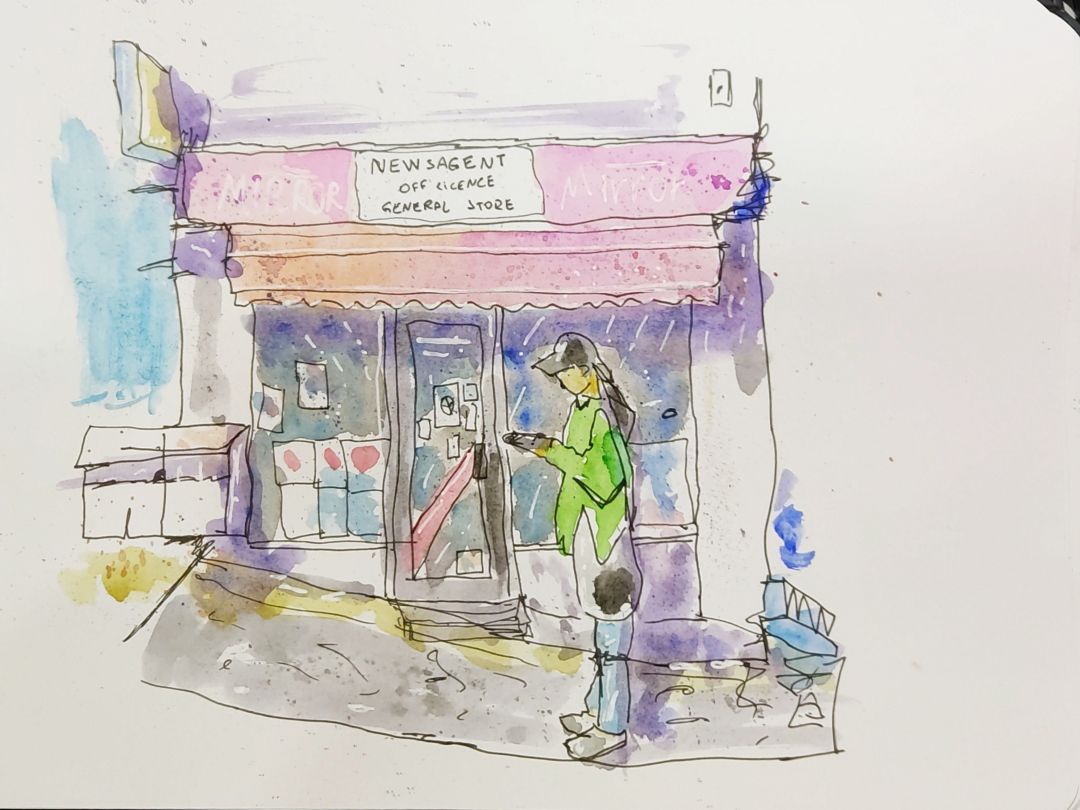 MIRROR
NEWSAGENT
OFF LICENCE
GENERAL STORE
Mirror